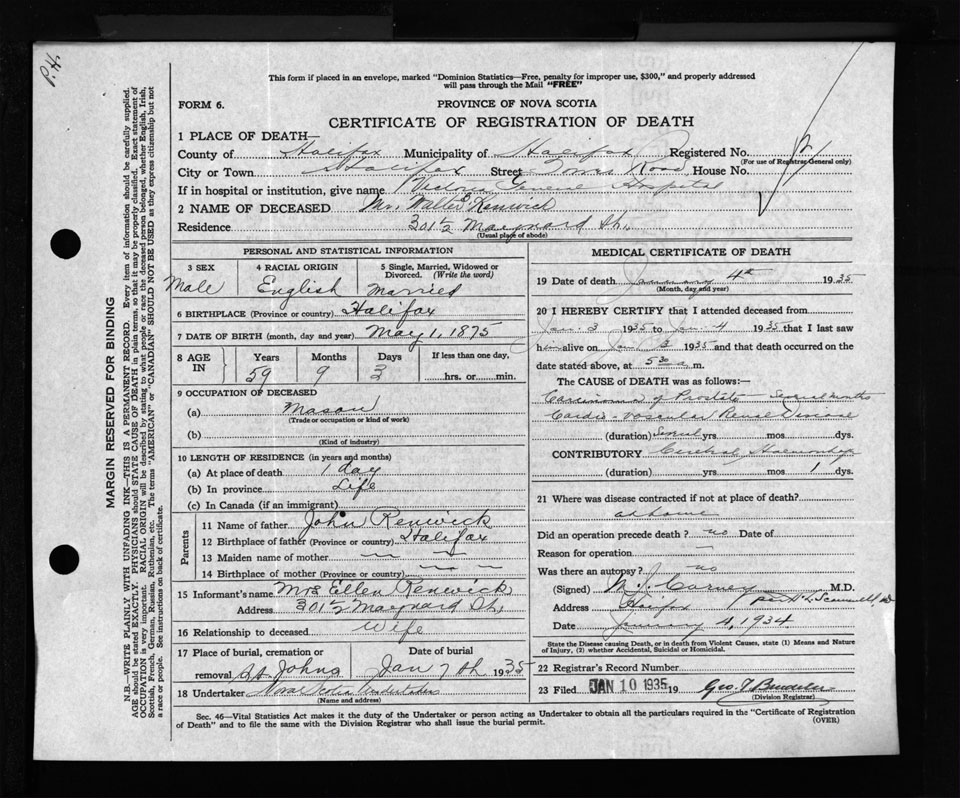 P.H.
This form if placed in an envelope, marked "Dominion Statistics—Free, penalty for improper use, $300," and properly addressed
will pass through the Mail "FREE"
FORM 6.
PROVINCE OF NOVA SCOTIA
CERTIFICATE OF REGISTRATION OF DEATH
1 PLACE OF DEATH—
County of Halifax Municipality of Halifax Registered No.
(For use of Registrar General only)
City or Town Halifax Street Road House No.
If in hospital or institution, give name Victoria General Hospital
2 NAME OF DECEASED Mr. Walter Renwick
Residence 301½ Maynard St.
(Usual place of abode)
PERSONAL AND STATISTICAL INFORMATION
3 SEX Male
4 RACIAL ORIGIN English
5 Single, Married, Widowed or Divorced. (Write the word) Married
6 BIRTHPLACE (Province or country) Halifax
7 DATE OF BIRTH (month, day and year) May 1, 1875
8 AGE IN Years 59 Months 9 Days 3 If less than one day, hrs. or min.
9 OCCUPATION OF DECEASED
(a) Mason
(Trade or occupation or kind of work)
(b)
(Kind of industry)
10 LENGTH OF RESIDENCE (in years and months)
(a) At place of death 1 day
(b) In province Life
(c) In Canada (if an immigrant)
Parents
11 Name of father John Renwick
12 Birthplace of father (Province or country) Halifax
13 Maiden name of mother
14 Birthplace of mother (Province or country)
15 Informant's name Mrs Ellen Renwick
Address 301½ Maynard St.
16 Relationship to deceased Wife
17 Place of burial, cremation or removal St Johns
Date of burial Jan 7th 1935
18 Undertaker Nova Scotia Undertaker
(Name and address)
MEDICAL CERTIFICATE OF DEATH
19 Date of death January 4th 1935
(Month, day and year)
20 I HEREBY CERTIFY that I attended deceased from
Jan. 3 1935 to Jan. 4 1935 that I last saw
him alive on Jan 3 1935 and that death occurred on the
date stated above, at 5 30 a. m.
The CAUSE OF DEATH was as follows:—
Carcinoma of Prostate - Several months
Cardio-vascular Renal Disease
(duration) Several yrs. mos. dys.
CONTRIBUTORY Cerebral Haemorrhage
(duration) yrs. mos. 1 dys.
21 Where was disease contracted if not at place of death?
at home
Did an operation precede death? no Date of
Reason for operation
Was there an autopsy? no
(Signed) M. J. Carney M.D.
Address Halifax
Date January 4, 1934
State the Disease causing Death, or in death from Violent Causes, state (1) Means and Nature
of Injury, (2) whether Accidental, Suicidal or Homicidal.
22 Registrar's Record Number
23 Filed JAN 10 1935 19 Geo.
(Division Registrar)
Sec. 46—Vital Statistics Act makes it the duty of the Undertaker or person acting as Undertaker to obtain all the particulars required in the "Certificate of Registration
of Death" and to file the same with the Division Registrar who shall issue the burial permit.
(OVER)
MARGIN RESERVED FOR BINDING
N.B.—WRITE PLAINLY WITH UNFADING INK—THIS IS A PERMANENT RECORD. Every item of information should be carefully supplied.
AGE should be stated EXACTLY. PHYSICIANS should STATE CAUSE OF DEATH in plain terms, so that it may be properly classified. Exact statement of
OCCUPATION is very important. RACIAL ORIGIN will be described by stating to what people or race the deceased person belonged, whether English, Irish,
Scottish, French, German, Russian, Ruthenian, etc. The terms "AMERICAN" or "CANADIAN" SHOULD NOT BE USED as they express citizenship but not
a race or people. See instructions on back of certificate.